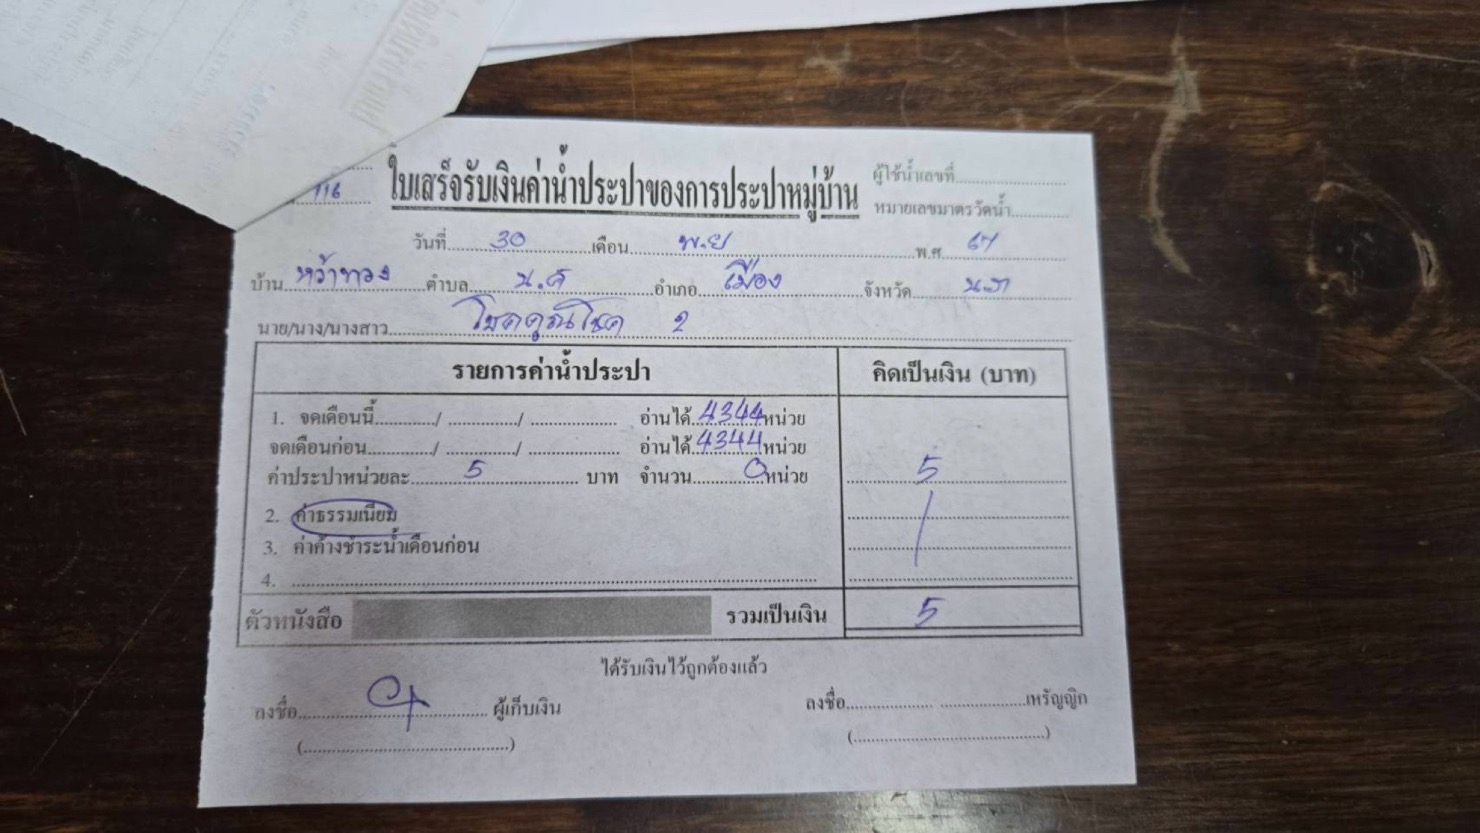 116
ใบเสร็จรับเงินค่าน้ำประปาของการประปาหมู่บ้าน
ผู้ใช้น้ำเลขที่
หมายเลขมาตรวัดน้ำ
วันที่ 30 เดือน พ.ย พ.ศ. 67
บ้าน หว้าทอง ตำบล น.ค อำเภอ เมือง จังหวัด น.ภ
นาย/นาง/นางสาว โชคคูณโชค 2
รายการค่าน้ำประปา คิดเป็นเงิน (บาท)
1. จดเดือนนี้ / / อ่านได้ 4344 หน่วย
จดเดือนก่อน / / อ่านได้ 4344 หน่วย
ค่าประปาหน่วยละ 5 บาท จำนวน 0 หน่วย 5
2. ค่าธรรมเนียม
3. ค่าค้างชำระน้ำเดือนก่อน
4.
ตัวหนังสือ รวมเป็นเงิน 5
ได้รับเงินไว้ถูกต้องแล้ว
ลงชื่อ ผู้เก็บเงิน ลงชื่อ เหรัญญิก
( ) ( )